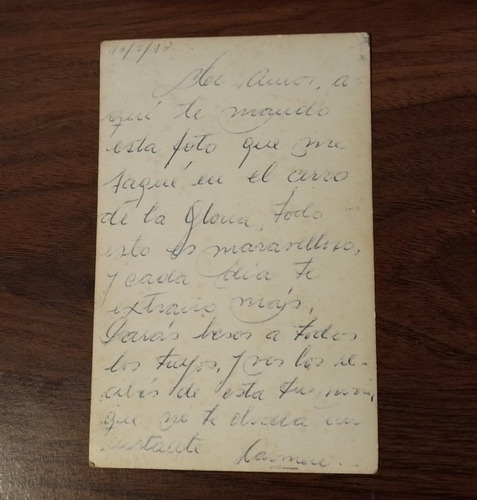 Mi amor, a-
quí te mando
esta foto que me
saqué en el cerro
de la Gloria, todo
esto es maravilloso,
y cada día te
extraño más,
Darás besos a todos
los tuyos, y vos los re-
cibís de esta tu novia,
que no te olvida un
instante Carmen...